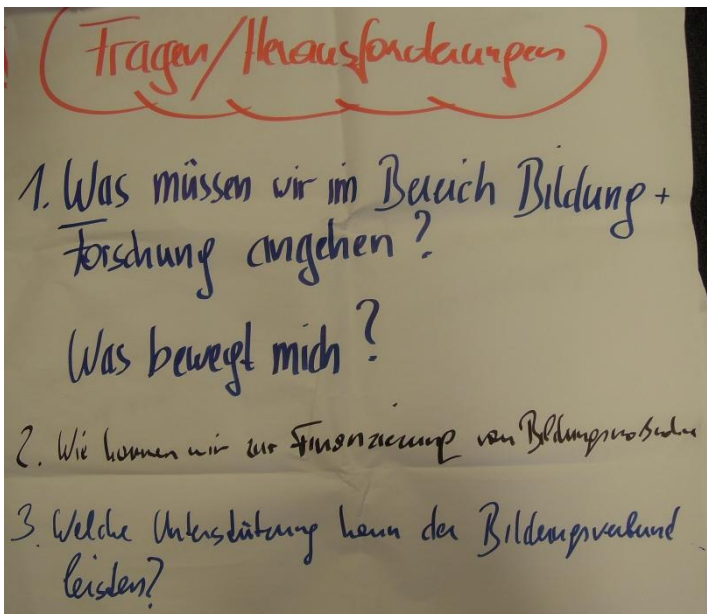 Fragen/Herausforderungen
1. Was müssen wir im Bereich Bildung +
Forschung angehen?
Was bewegt mich?
2. Wie kommen wir zur Finanzierung von
3. Welche Unterstützung kann der Bildungsverbund
leisten?